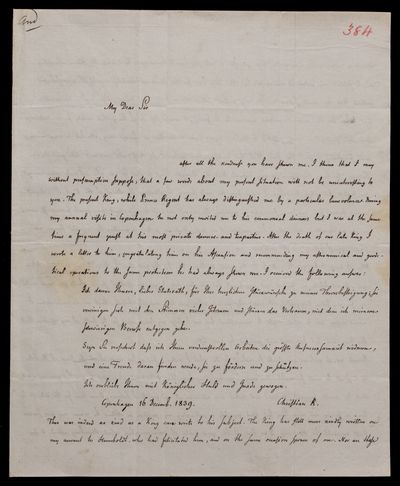 and
384
My Dear Sir
After all the kindness you have shown me, I think that I may
without presumption suppose, that a few words about my present situation will not be uninteresting to
you. The present King, while Prince Regent has always distinguished me by a particular benevolence. During
my annual visits in Copenhagen he not only invited me to his ceremonial dinners but I was at the same
time a frequent guest at his most private dinners and teaparties. After the death of our late King I
wrote a letter to him, congratulating him on his Ascension and recommending my astronomical and
operations to the same protection he had always shown me. I received the following answer:
Ich danke Ihnen, lieber Etatsrath, für Ihre herzlichen Glückwünsche zu meiner Thronbesteigung; Sie
vereinigen sich mit den Stimmen vieler und das Vertrauen, mit dem ich meinem
schwierigen Berufe entgegen gehe.
Seyn Sie versichert daß ich Ihren verdienstvollen Arbeiten die größte Aufmerksamkeit widmen,
und eine Freude daran finden werde, sie zu fördern und zu schützen.
Ich verbleibe Ihnen mit Königlicher Huld und Gnade gewogen.
Copenhagen 16 Decemb. 1839. Christian R.
This was indeed as kind as a King can write to his subject. The King has still more kindly written on
my account to Humboldt, who had felicitated him, and on the same occasion spoken of me. Nor an